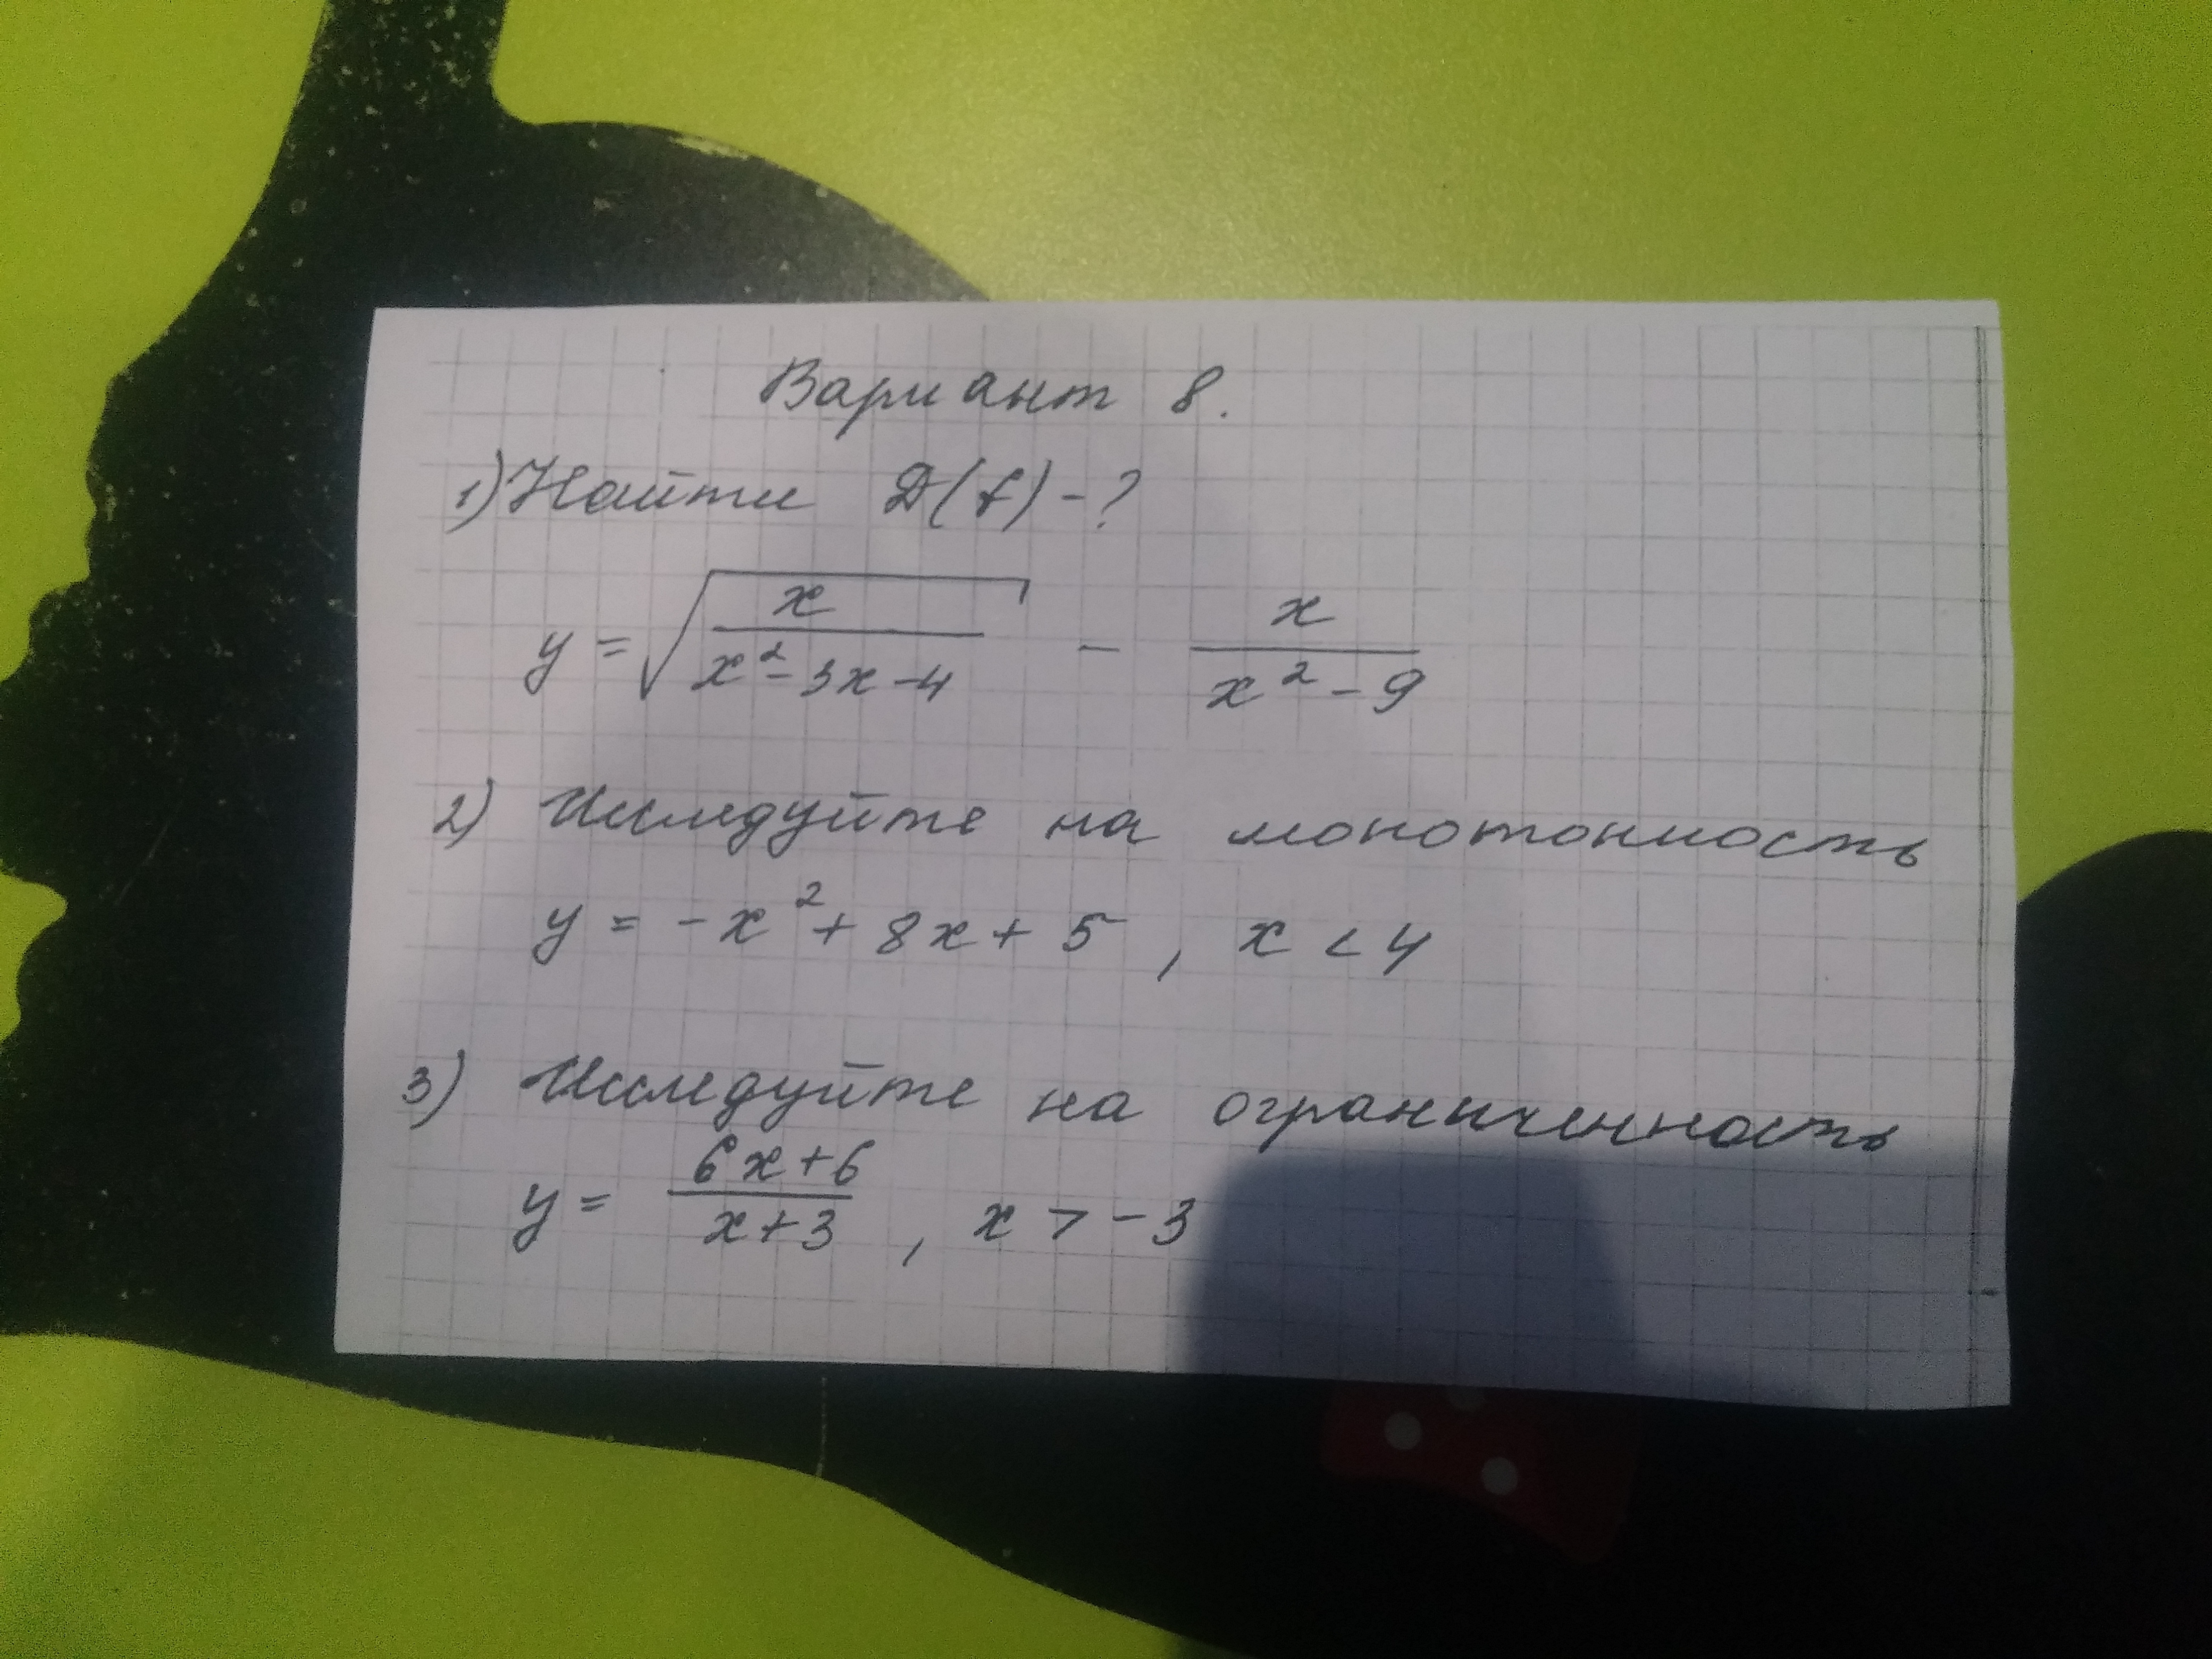 Вариант 8.
1) Найти D(f) - ?
y = √(x / (x² - 3x - 4)) - x / (x² - 9)
2) Исследуйте на монотонность
y = -x² + 8x + 5, x < 4
3) Исследуйте на ограниченность
y = (6x + 6) / (x + 3), x > -3